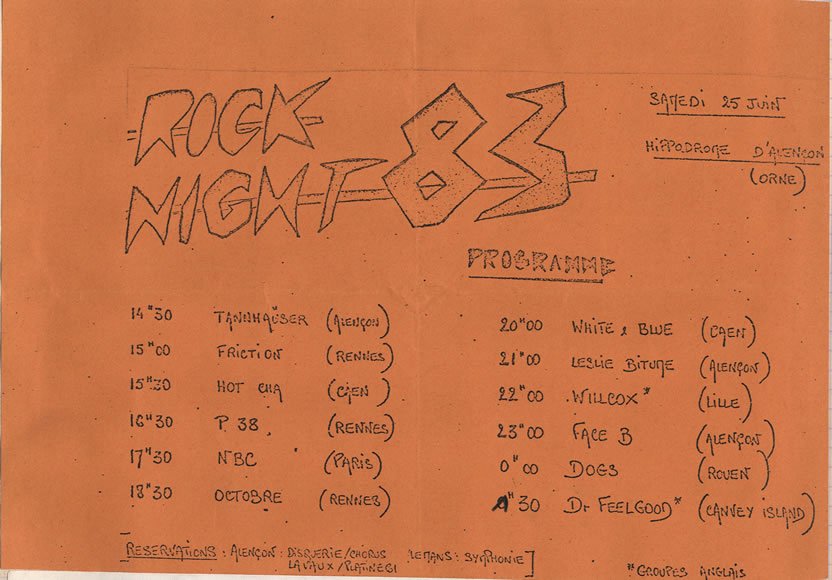 ROCK
NIGHT 83
SAMEDI 25 JUIN
HIPPODROME D'ALENÇON
(ORNE)
PROGRAMME
14H30 TANNHAÜSER (ALENÇON)
15H00 FRICTION (RENNES)
15H30 HOT CHA (CAEN)
16H30 P.38. (RENNES)
17H30 NBC (PARIS)
18H30 OCTOBRE (RENNES)
20H00 WHITE & BLUE (CAEN)
21H00 LESLIE BITUME (ALENÇON)
22H00 WILLCOX* (LILLE)
23H00 FACE B (ALENÇON)
0H00 DOGS (ROUEN)
1H30 Dr FEELGOOD* (CANVEY ISLAND)
RESERVATIONS : ALENÇON : DISQUERIE/CHORUS LE MANS : SYMPHONIE]
LAVAUX/PLATINE61
*GROUPES ANGLAIS